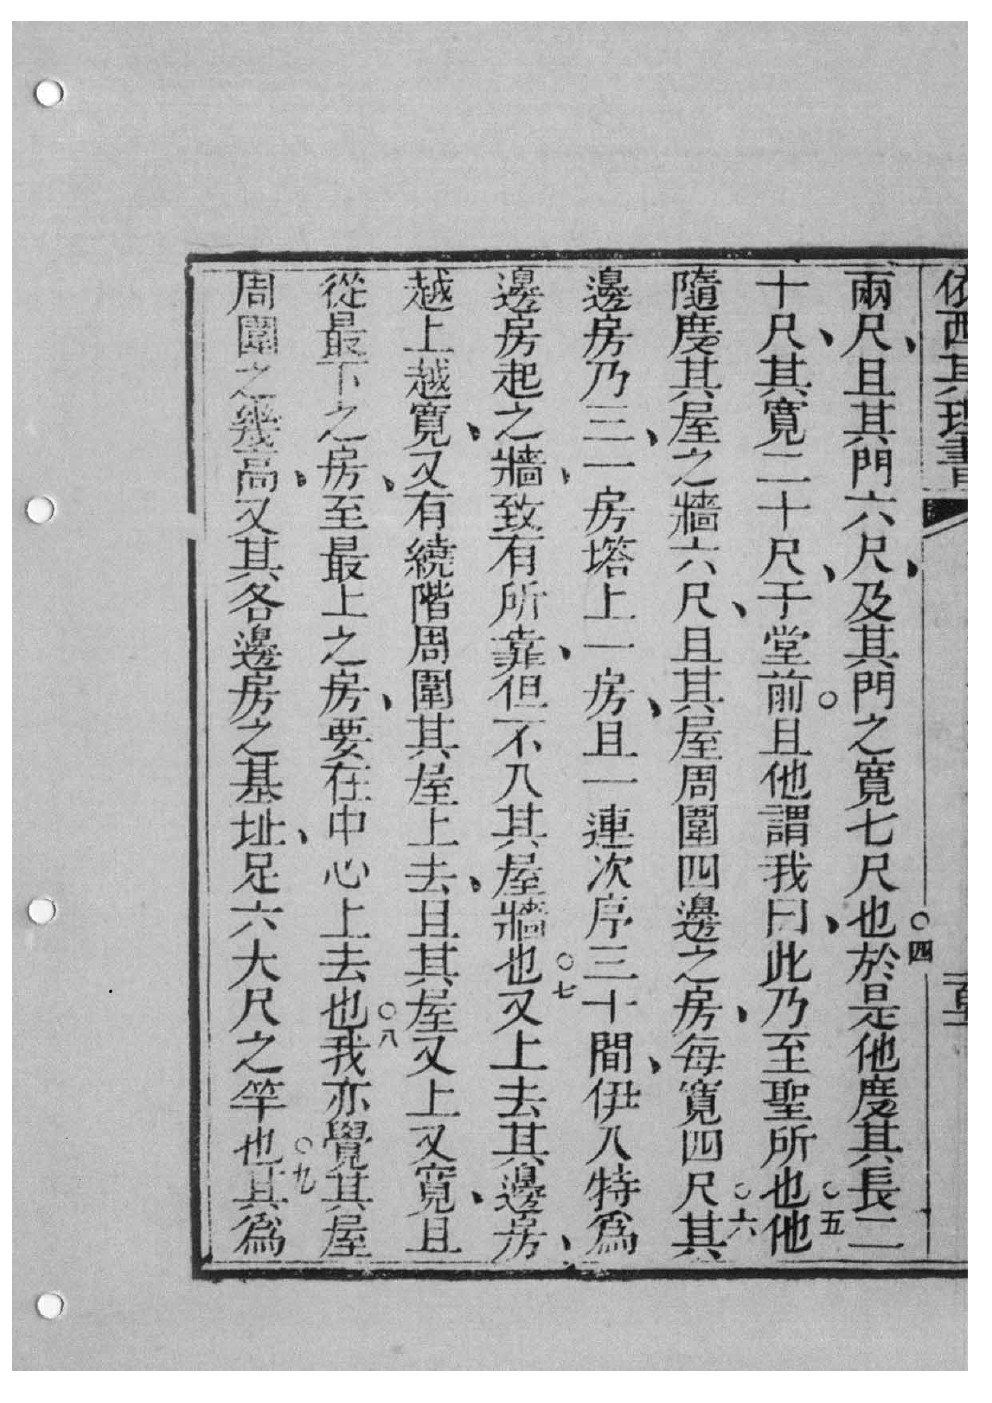 依西其理書
兩尺、且其門六尺、及其門之寬七尺也○四於是他度其長二
十尺、其寬二十尺、于堂前○且他謂我曰、此乃至聖所也○五他
隨度其屋之牆六尺、且其屋周圍四邊之房、每寬四尺○六其
邊房乃三、一房塔上一房、且一連次序三十間、伊入特爲
邊房起之牆、致有所靠、但不入其屋牆也○七又上去其邊房、
越上越寬、又有繞階周圍其屋上去、且其屋又上又寬、且
從最下之房、至最上之房、要在中心上去也○八我亦覺其屋
周圍之幾高、又其各邊房之基址、足六大尺之竿也○九其爲